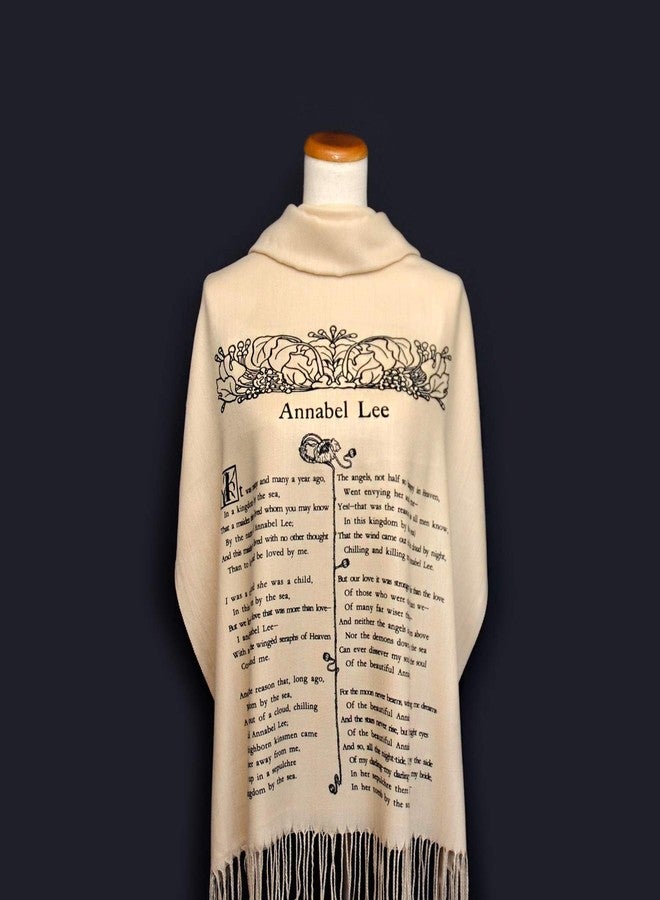 Annabel Lee
It was and many a year ago,
In a kingdom by the sea,
That a maiden lived whom you may know
By the name Annabel Lee;
And this maiden lived with no other thought
Than to be loved by me.
I was a she was a child,
In this by the sea,
But we love that was more than love—
I Annabel Lee—
With a the wingèd seraphs of Heaven
me.
And reason that, long ago,
by the sea,
out of a cloud, chilling
Annabel Lee;
kinsmen came
away from me,
in a sepulchre
by the sea.
The angels, not half so happy in Heaven,
Went envying her and me—
Yes!—that was the reason all men know,
In this kingdom by
That the wind came out cloud by night,
Chilling and killing Annabel Lee.
But our love it was stronger than the love
Of those who were than we—
Of many far wiser than
And neither the angels above
Nor the demons down the sea
Can ever dissever my soul the soul
Of the beautiful
For the moon never beams, me dreams
Of the beautiful
And the stars never rise, but eyes
Of the beautiful
And so, all the night-tide, by the side
Of my darling—my darling—my bride,
In her sepulchre there
In her tomb by the